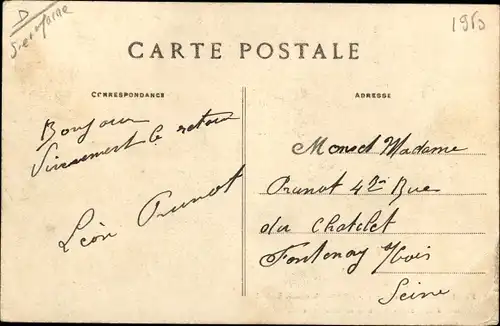 D
Seine et Marne
1950
CARTE POSTALE
CORRESPONDANCE
ADRESSE
Bonjour
Vivement le retour
Léon Prunot
Mons et Madame
Prunot 42 Rue
du Chatelet
Fontenay s/bois
Seine